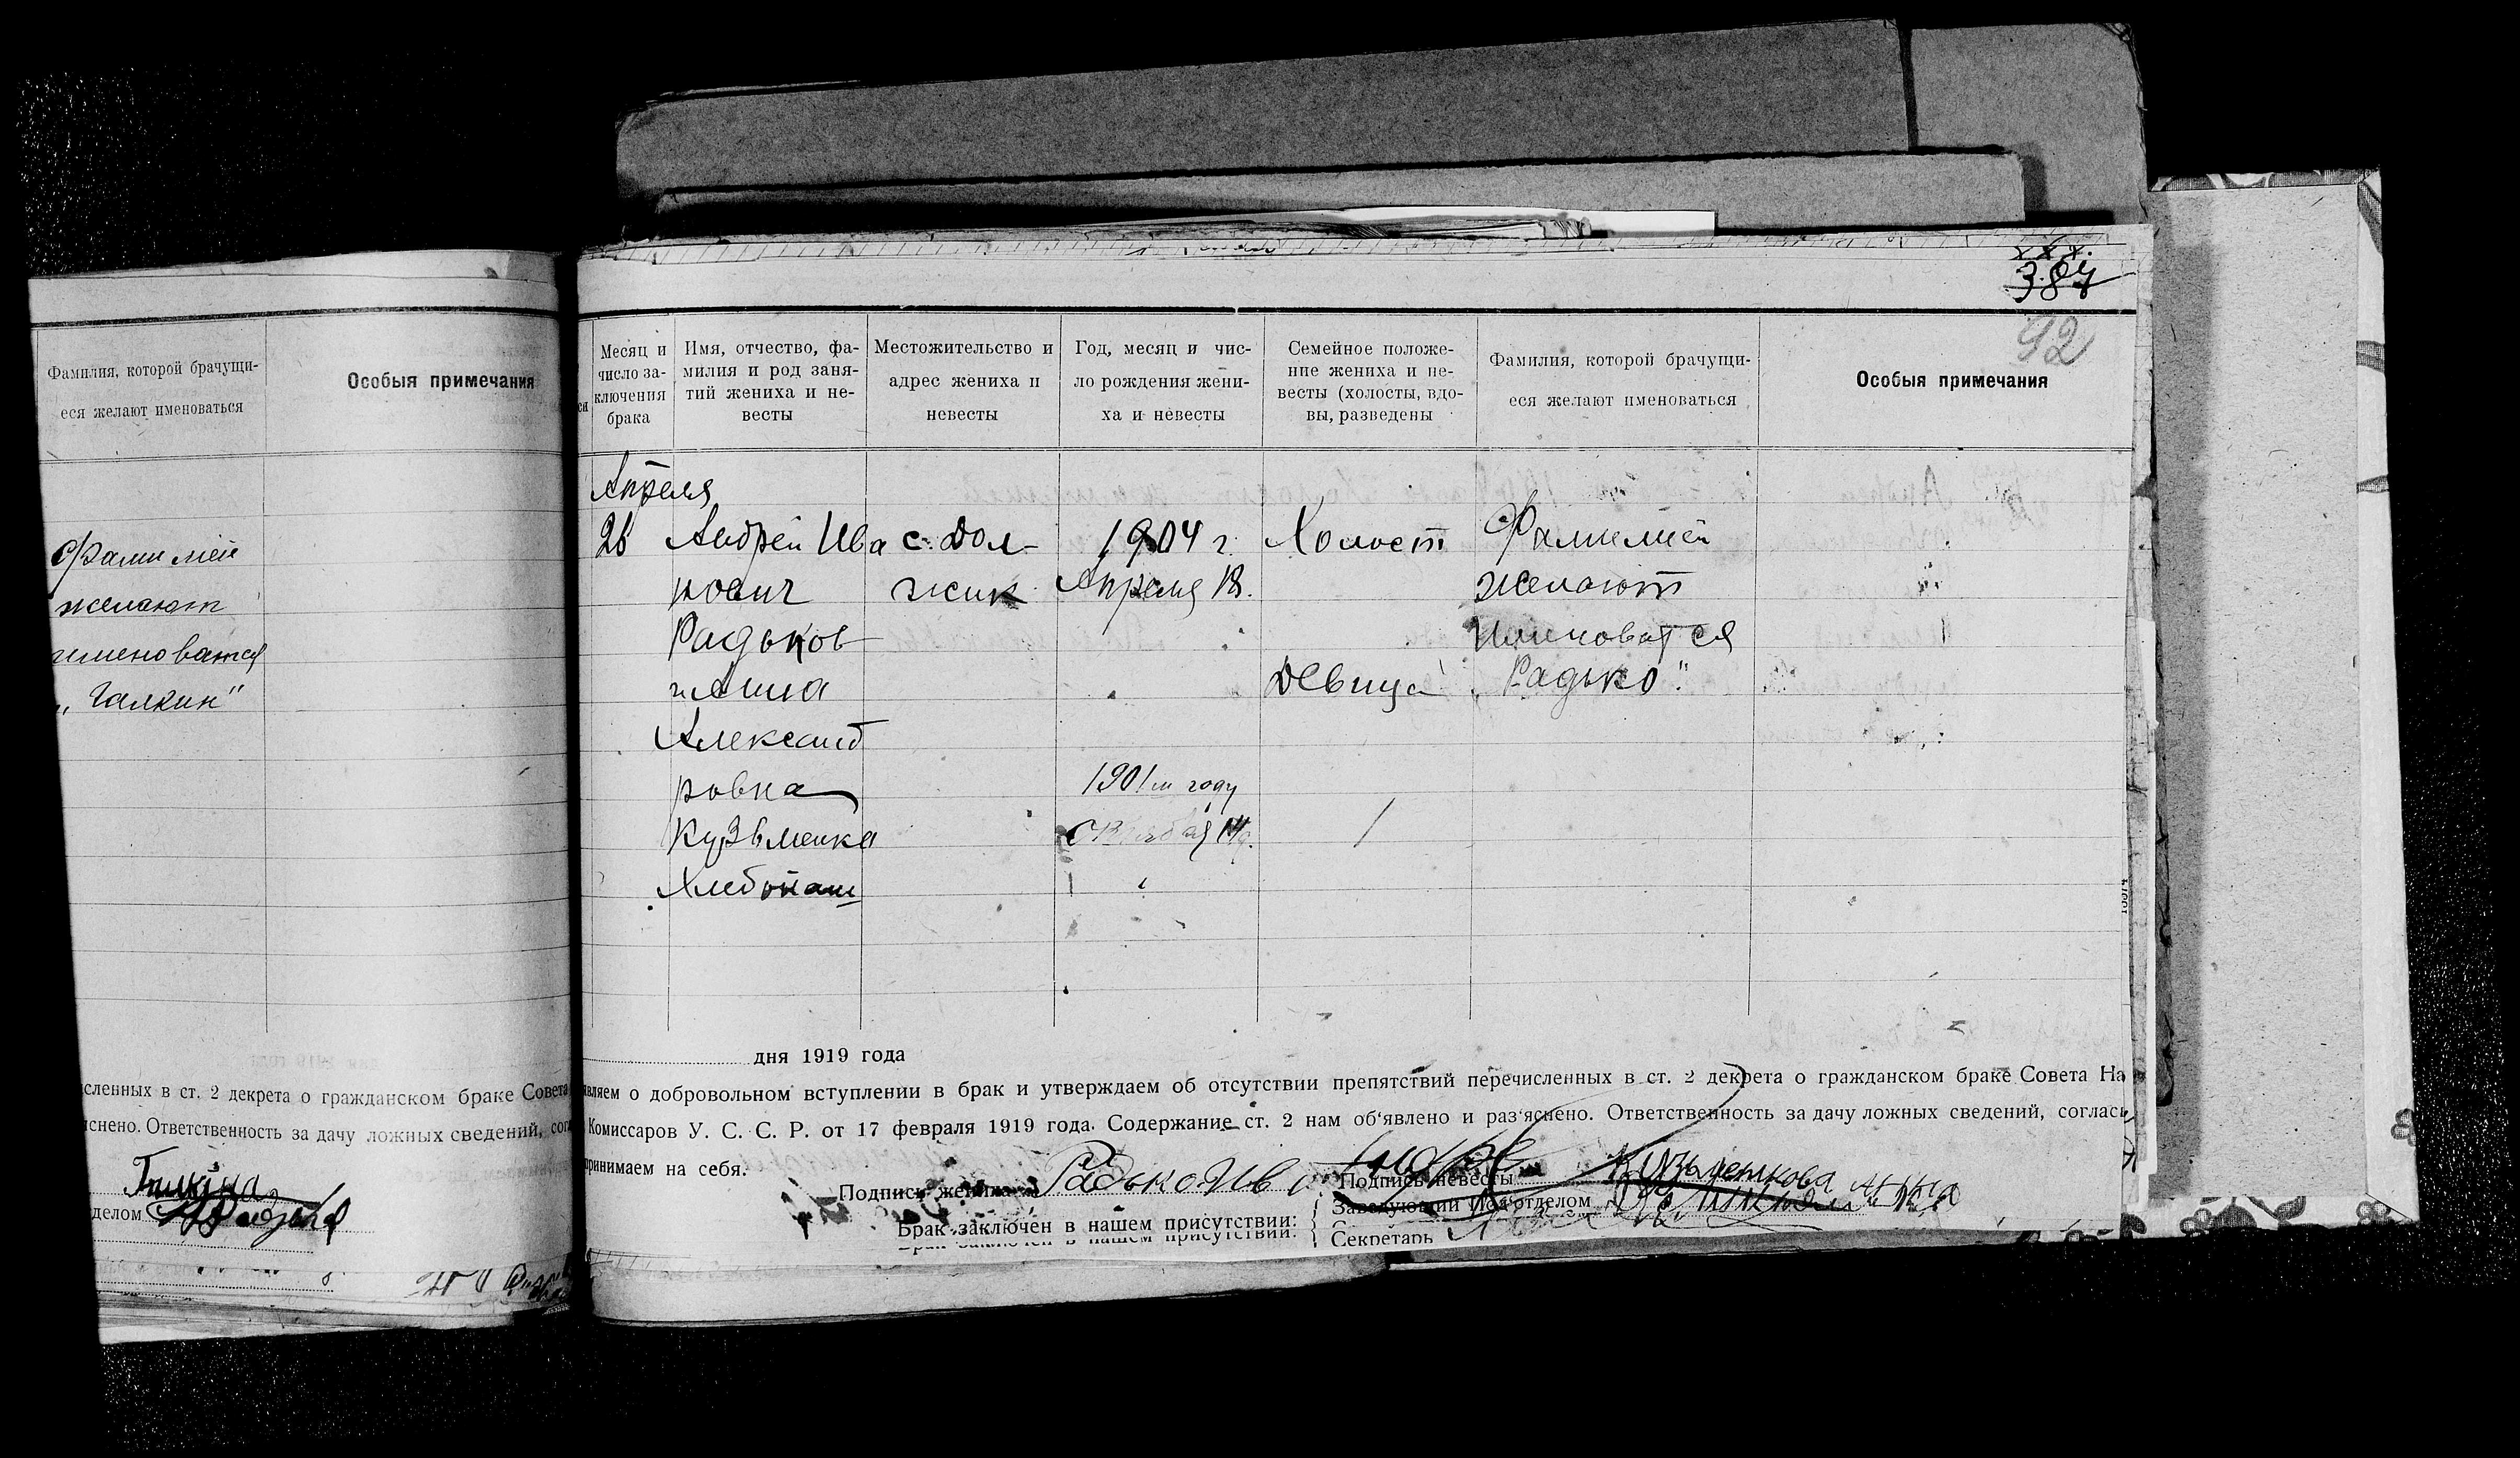 Фамилия, которой брачущи-
еся желают именоваться
Особыя примечания
Фамилией
желают
именоватся
„Галкин"
сленных в ст. 2 декрета о гражданском браке Совета
снено. Ответственность за дачу ложных сведений,
Галкина
делом
92
Месяц и
число за-
ключения
брака
Имя, отчество, фа-
милия и род заня-
тий жениха и не-
весты
Местожительство и
адрес жениха и
невесты
Год, месяц и чис-
ло рождения жени-
ха и невесты
Семейное положе-
ние жениха и не-
весты (холосты, вдо-
вы, разведены
Фамилия, которой брачущи-
еся желают именоваться
Особыя примечания
Апреля
26 Андрей Ива с. Дол- 1904 г. Холост Фамилией
нович жик Апреля 18. желают
Радьков Именоватся
и Анна Девица „Радько".
Александ
ровна 1901м году
Кузьменка Октября
Хлебопаш
дня 1919 года
вляем о добровольном вступлении в брак и утверждаем об отсутствии препятствий перечисленных в ст. 2 декрета о гражданском браке Совета На
Комиссаров У. С. С. Р. от 17 февраля 1919 года. Содержание ст. 2 нам об'явлено и раз'яснено. Ответственность за дачу ложных сведений, соглас
принимаем на себя.
Подпись жениха Радько Ив Подпись невесты Кузьменкова Анна
Заведующий Под'отделом
Брак заключен в нашем присутствии:
Секретарь